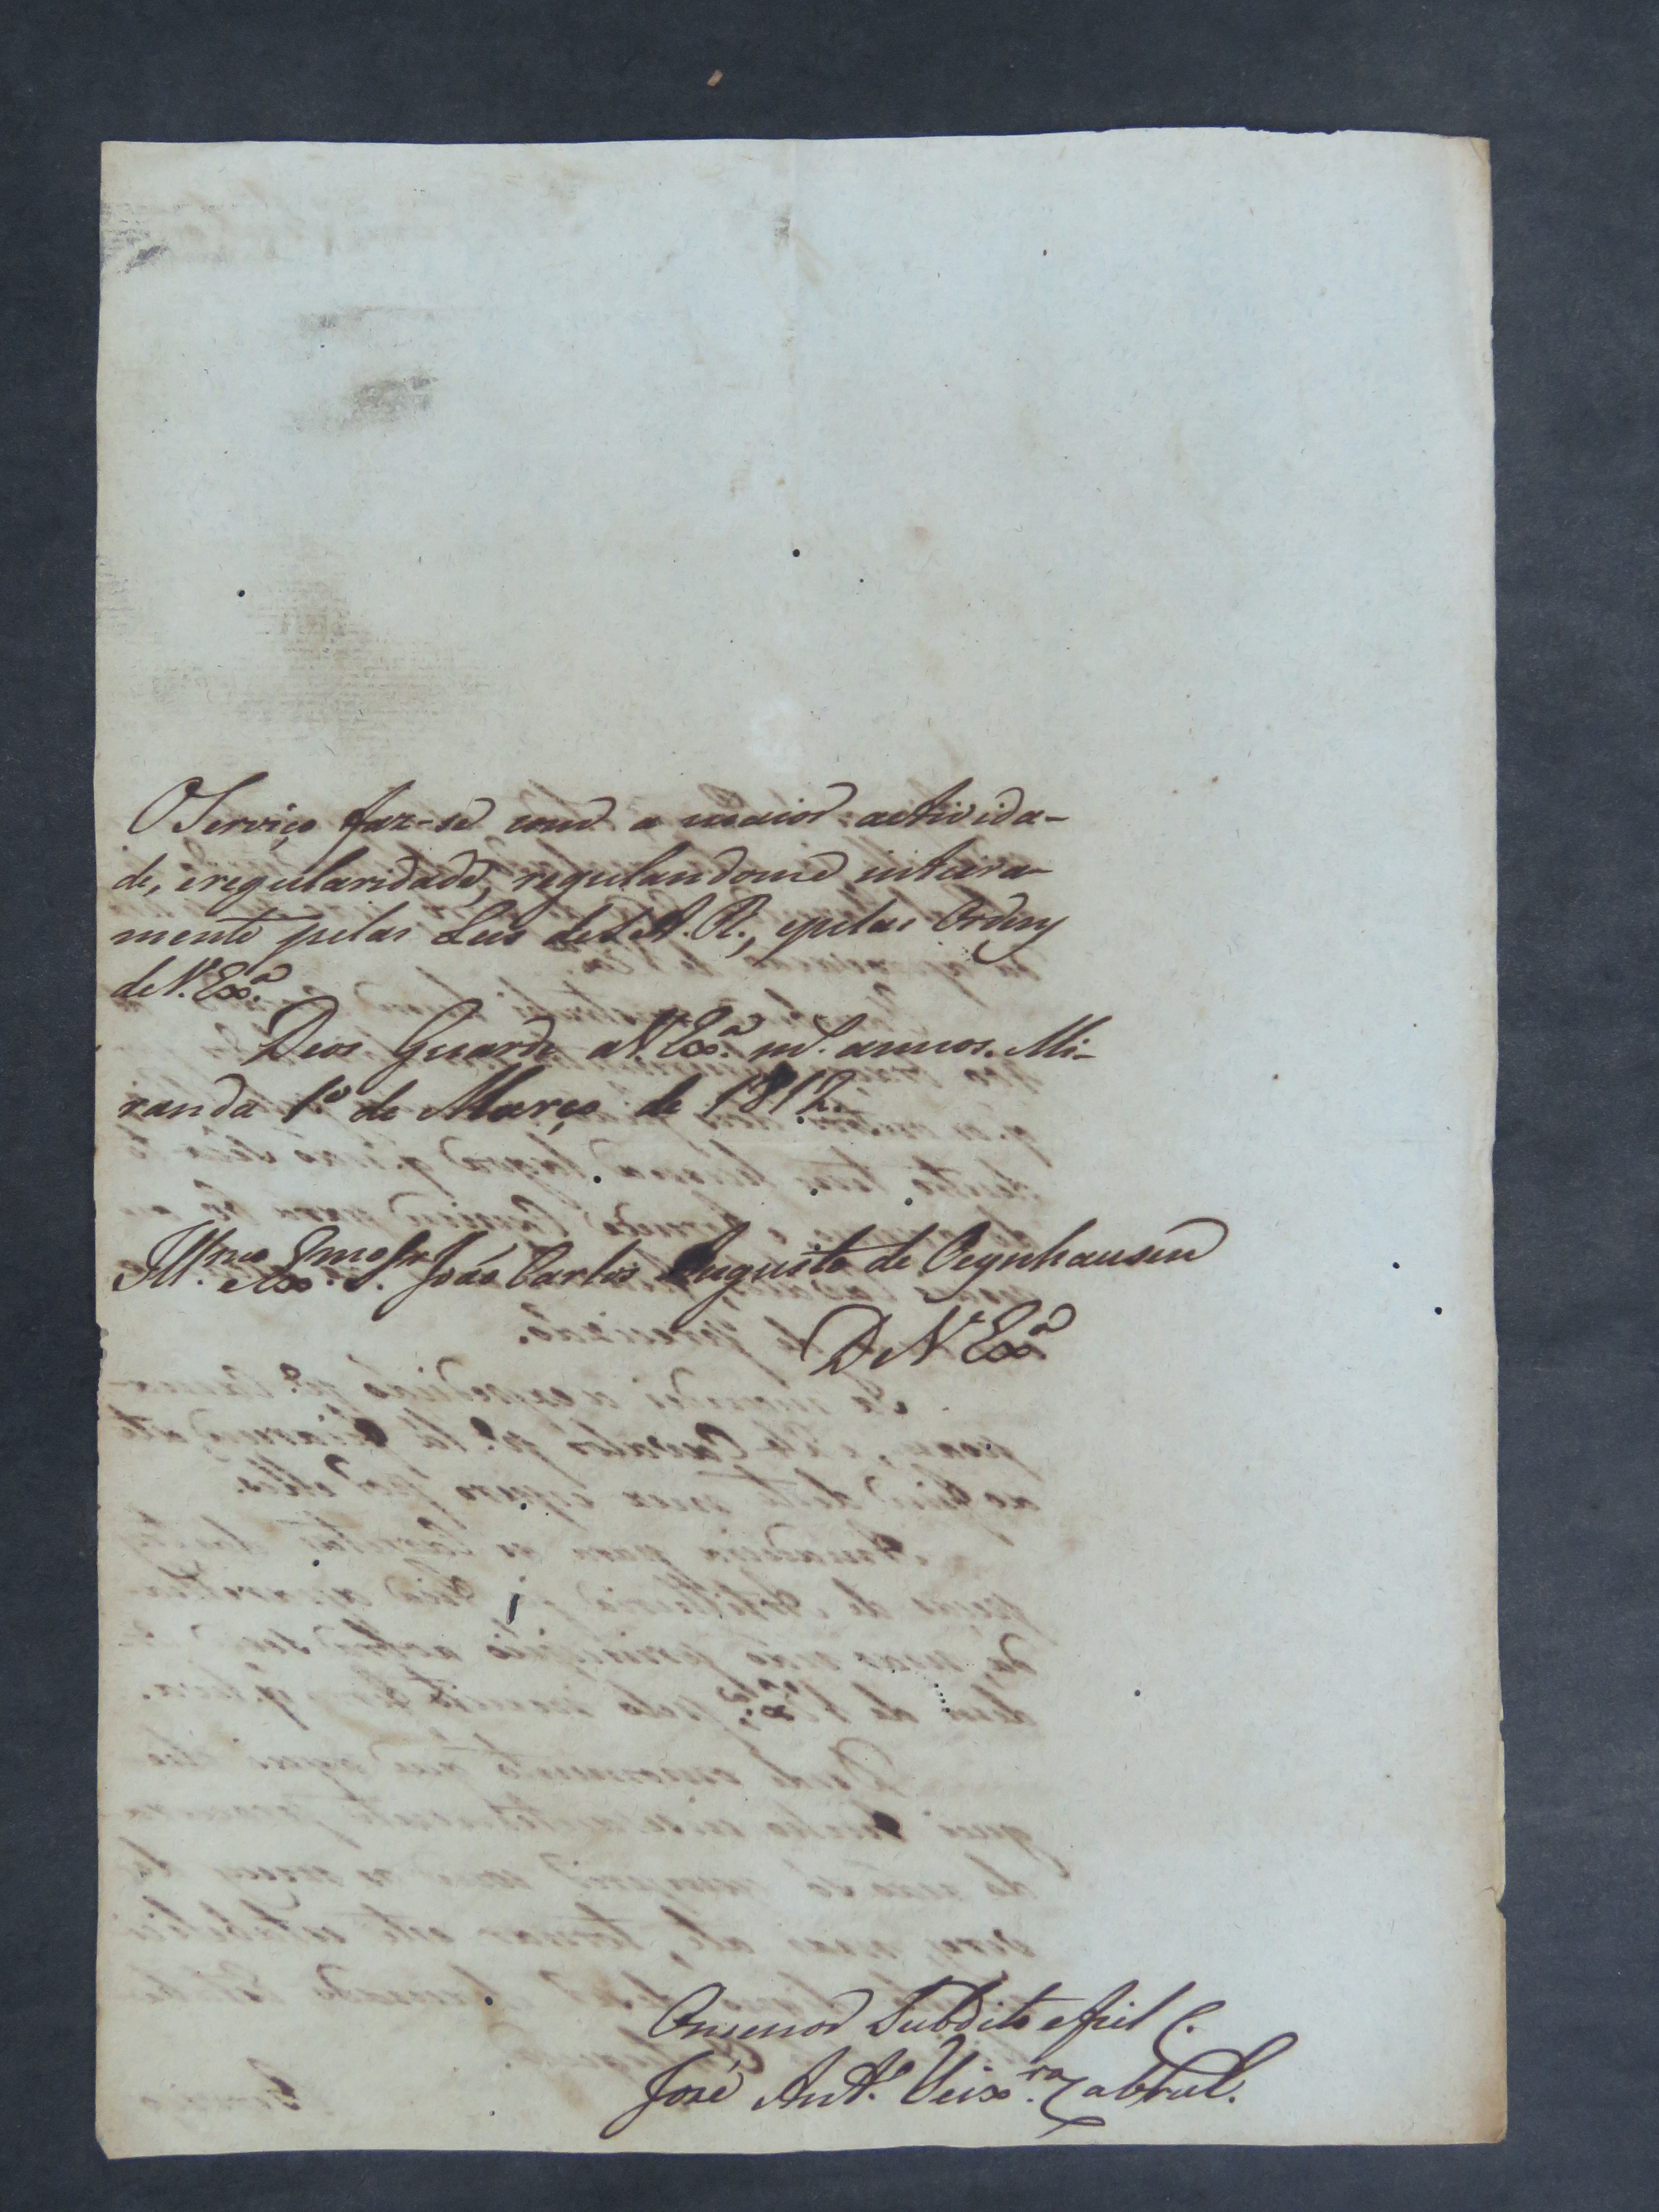 O Serviço faz-se com a maior activida-
de, e regularidade, regulandome inteira-
mente pelas Leis de S. A. R., e pelas Ordens
de V. Exª.
Deos Guarde a V. Exª. mˢ. annos. Mi-
randa 1º de Março de 1812.
Illᵐᵒ e Exᵐᵒ Sʳ. João Carlos Augusto de Oeynhausen
D V Exª
O menor Subdito e fiel C.
José Antº. Teixʳᵃ. Cabral.